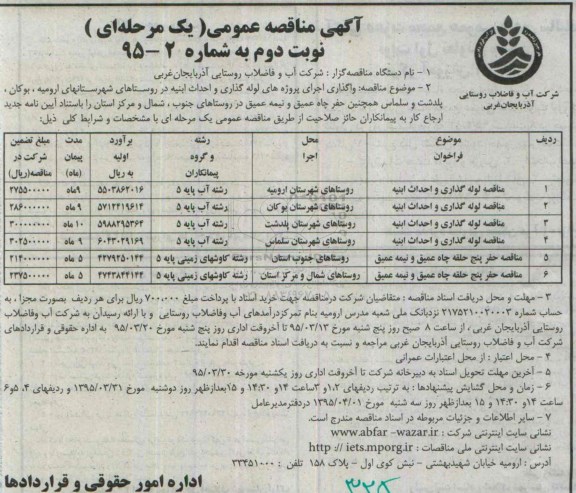 آگهی مناقصه عمومی( یک مرحله‌ای )
نوبت دوم به شماره ۲ -۹۵
شرکت آب و فاضلاب روستایی
آذربایجان‌غربی
۱ - نام دستگاه مناقصه‌گزار : شرکت آب و فاضلاب روستایی آذربایجان‌غربی
۲ - موضوع مناقصه: واگذاری اجرای پروژه های لوله گذاری و احداث ابنیه در روستـاهای شهرستانهای ارومیه ، بوکان ،
پلدشت و سلماس همچنین حفر چاه عمیق و نیمه عمیق در روستاهای جنوب ، شمال و مرکز استان را باستناد آیین نامه جدید
ارجاع کار به پیمانکاران حائز صلاحیت از طریق مناقصه عمومی یک مرحله ای با مشخصات و شرایط کلی ذیل:
ردیف | موضوع فراخوان | محل اجرا | رشته و گروه پیمانکاران | برآورد اولیه به ریال | مدت پیمان (ماه) | مبلغ تضمین شرکت در مناقصه(ریال)
۱ | مناقصه لوله گذاری و احداث ابنیه | روستاهای شهرستان ارومیه | رشته آب پایه ۵ | ۵۵۰۳۸۶۲۰۱۶ | ۹ماه | ۲۷۵۵۰۰۰۰۰
۲ | مناقصه لوله گذاری و احداث ابنیه | روستاهای شهرستان بوکان | رشته آب پایه ۵ | ۵۷۱۲۴۱۹۶۱۴ | ۹ ماه | ۲۸۶۰۰۰۰۰۰
۳ | مناقصه لوله گذاری و احداث ابنیه | روستاهای شهرستان پلدشت | رشته آب پایه ۵ | ۵۹۸۸۲۹۵۳۶۴ | ۱۰ ماه | ۳۰۰۰۰۰۰۰۰
۴ | مناقصه لوله گذاری و احداث ابنیه | روستاهای شهرستان سلماس | رشته آب پایه ۵ | ۶۰۴۳۰۲۹۱۶۹ | ۹ ماه | ۳۰۲۵۰۰۰۰۰
۵ | مناقصه حفر پنج حلقه چاه عمیق و نیمه عمیق | روستاهای جنوب استان | رشته کاوشهای زمینی پایه ۵ | ۴۲۷۹۲۵۰۱۴۴ | ۵ ماه | ۲۱۴۰۰۰۰۰۰
۶ | مناقصه حفر پنج حلقه چاه عمیق و نیمه عمیق | روستاهای شمال و مرکز استان | رشته کاوشهای زمینی پایه ۵ | ۴۷۴۳۸۴۴۱۴۴ | ۵ ماه | ۲۳۷۵۰۰۰۰۰
۳ - مهلت و محل دریافت اسناد مناقصه : متقاضیان شرکت درمناقصه جهت خرید اسناد با پرداخت مبلغ ۷۰۰،۰۰۰ ریال برای هر ردیف بصورت مجزا، به
حساب شماره ۲۱۷۵۲۱۰۰۲۰۰۰۳ نزدبانک ملی شعبه مدرس ارومیه بنام تمرکزدرآمدهای آب وفاضلاب روستایی و با ارائه رسیدآن به شرکت آب وفاضلاب
روستایی آذربایجان غربی ، از ساعت ۸ صبح روز پنج شنبه مورخ ۹۵/۰۳/۱۳ تا آخروقت اداری روز پنج شنبه مورخ ۹۵/۰۳/۲۰ به اداره حقوقی و قراردادهای
شرکت آب و فاضلاب روستایی آذربایجان غربی مراجعه و نسبت به دریافت اسناد مناقصه اقدام نمایند.
۴ - محل اعتبار : از محل اعتبارات عمرانی
۵ - آخرین مهلت تحویل اسناد به دبیرخانه شرکت تا آخروقت اداری روز یکشنبه مورخه ۹۵/۰۳/۳۰
۶ - زمان و محل گشایش پیشنهادها : به ترتیب ردیفهای ۱،۲ و ۳ساعت ۱۴و ۱۴:۳۰ و ۱۵بعدازظهر روز دوشنبه مورخ ۱۳۹۵/۰۳/۳۱ و ردیفهای ۴، ۵و۶
ساعت ۱۴و ۱۴:۳۰ و ۱۵ بعدازظهر روز سه شنبه مورخ ۱۳۹۵/۰۴/۰۱ دردفترمدیرعامل
۷ - سایر اطلاعات و جزئیات مربوطه در اسناد مناقصه مندرج است.
نشانی سایت اینترنتی شرکت : www.abfar -wazar.ir
نشانی سایت اینترنتی ملی مناقصات : http :// iets.mporg.ir
آدرس : ارومیه خیابان شهیدبهشتی - نبش کوی اول - پلاک ۱۵۸ تلفن : ۳۳۴۵۱۰۰۰
اداره امور حقوقی و قراردادها